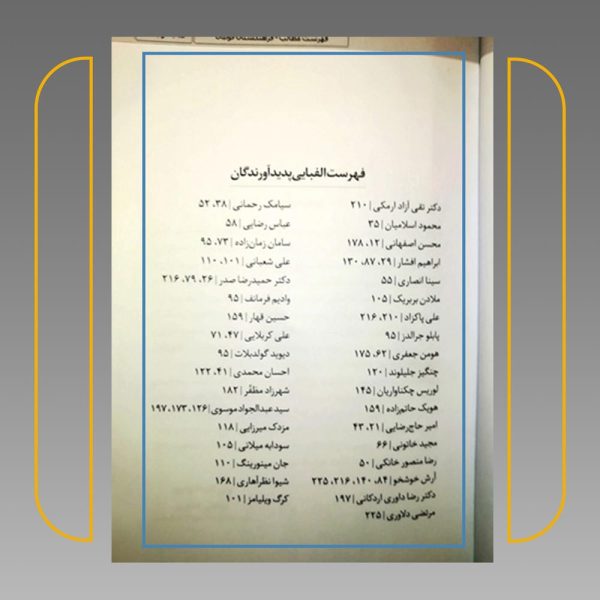 فهرست مطالب
فهرست الفبایی پدیدآورندگان
دکتر تقی آزاد ارمکی | ۲۱۰
محمود اسلامیان | ۳۵
محسن اصفهانی | ۱۲، ۱۷۸
ابراهیم افشار | ۲۹، ۸۷، ۱۳۰
سینا انصاری | ۵۵
ملادن بربریک | ۱۰۵
علی پاکزاد | ۲۱۰، ۲۱۶
پابلو جرالدز | ۹۵
هومن جعفری | ۶۲، ۱۷۵
چنگیز جلیلوند | ۱۲۰
لوریس چکناواریان | ۱۴۵
هویک حاتم‌زاده | ۱۵۹
امیر حاج‌رضایی | ۲۱، ۴۳
مجید خاتونی | ۶۶
رضا منصور خانکی | ۵۰
آرش خوشخو | ۸۴، ۱۴۰، ۲۱۶، ۲۲۵
دکتر رضا داوری اردکانی | ۱۹۷
مرتضی دلاوری | ۲۲۵
سیامک رحمانی | ۳۸، ۵۲
عباس رضایی | ۵۸
سامان زمان‌زاده | ۷۳، ۹۵
علی شعبانی | ۱۰۱، ۱۱۰
دکتر حمیدرضا صدر | ۲۶، ۷۹، ۲۱۶
وادیم فرمانف | ۹۵
حسین قهار | ۱۵۹
علی کربلایی | ۴۷، ۷۱
دیوید گولدبلات | ۹۵
احسان محمدی | ۴۱، ۱۲۲
شهرزاد مظفر | ۱۸۲
سید عبدالجواد موسوی | ۱۲۶، ۱۷۳، ۱۹۷
مزدک میرزایی | ۱۱۸
سودابه میلانی | ۱۰۵
جان مینورینگ | ۱۱۰
شیوا نظرآهاری | ۱۶۸
کرگ ویلیامز | ۱۰۱